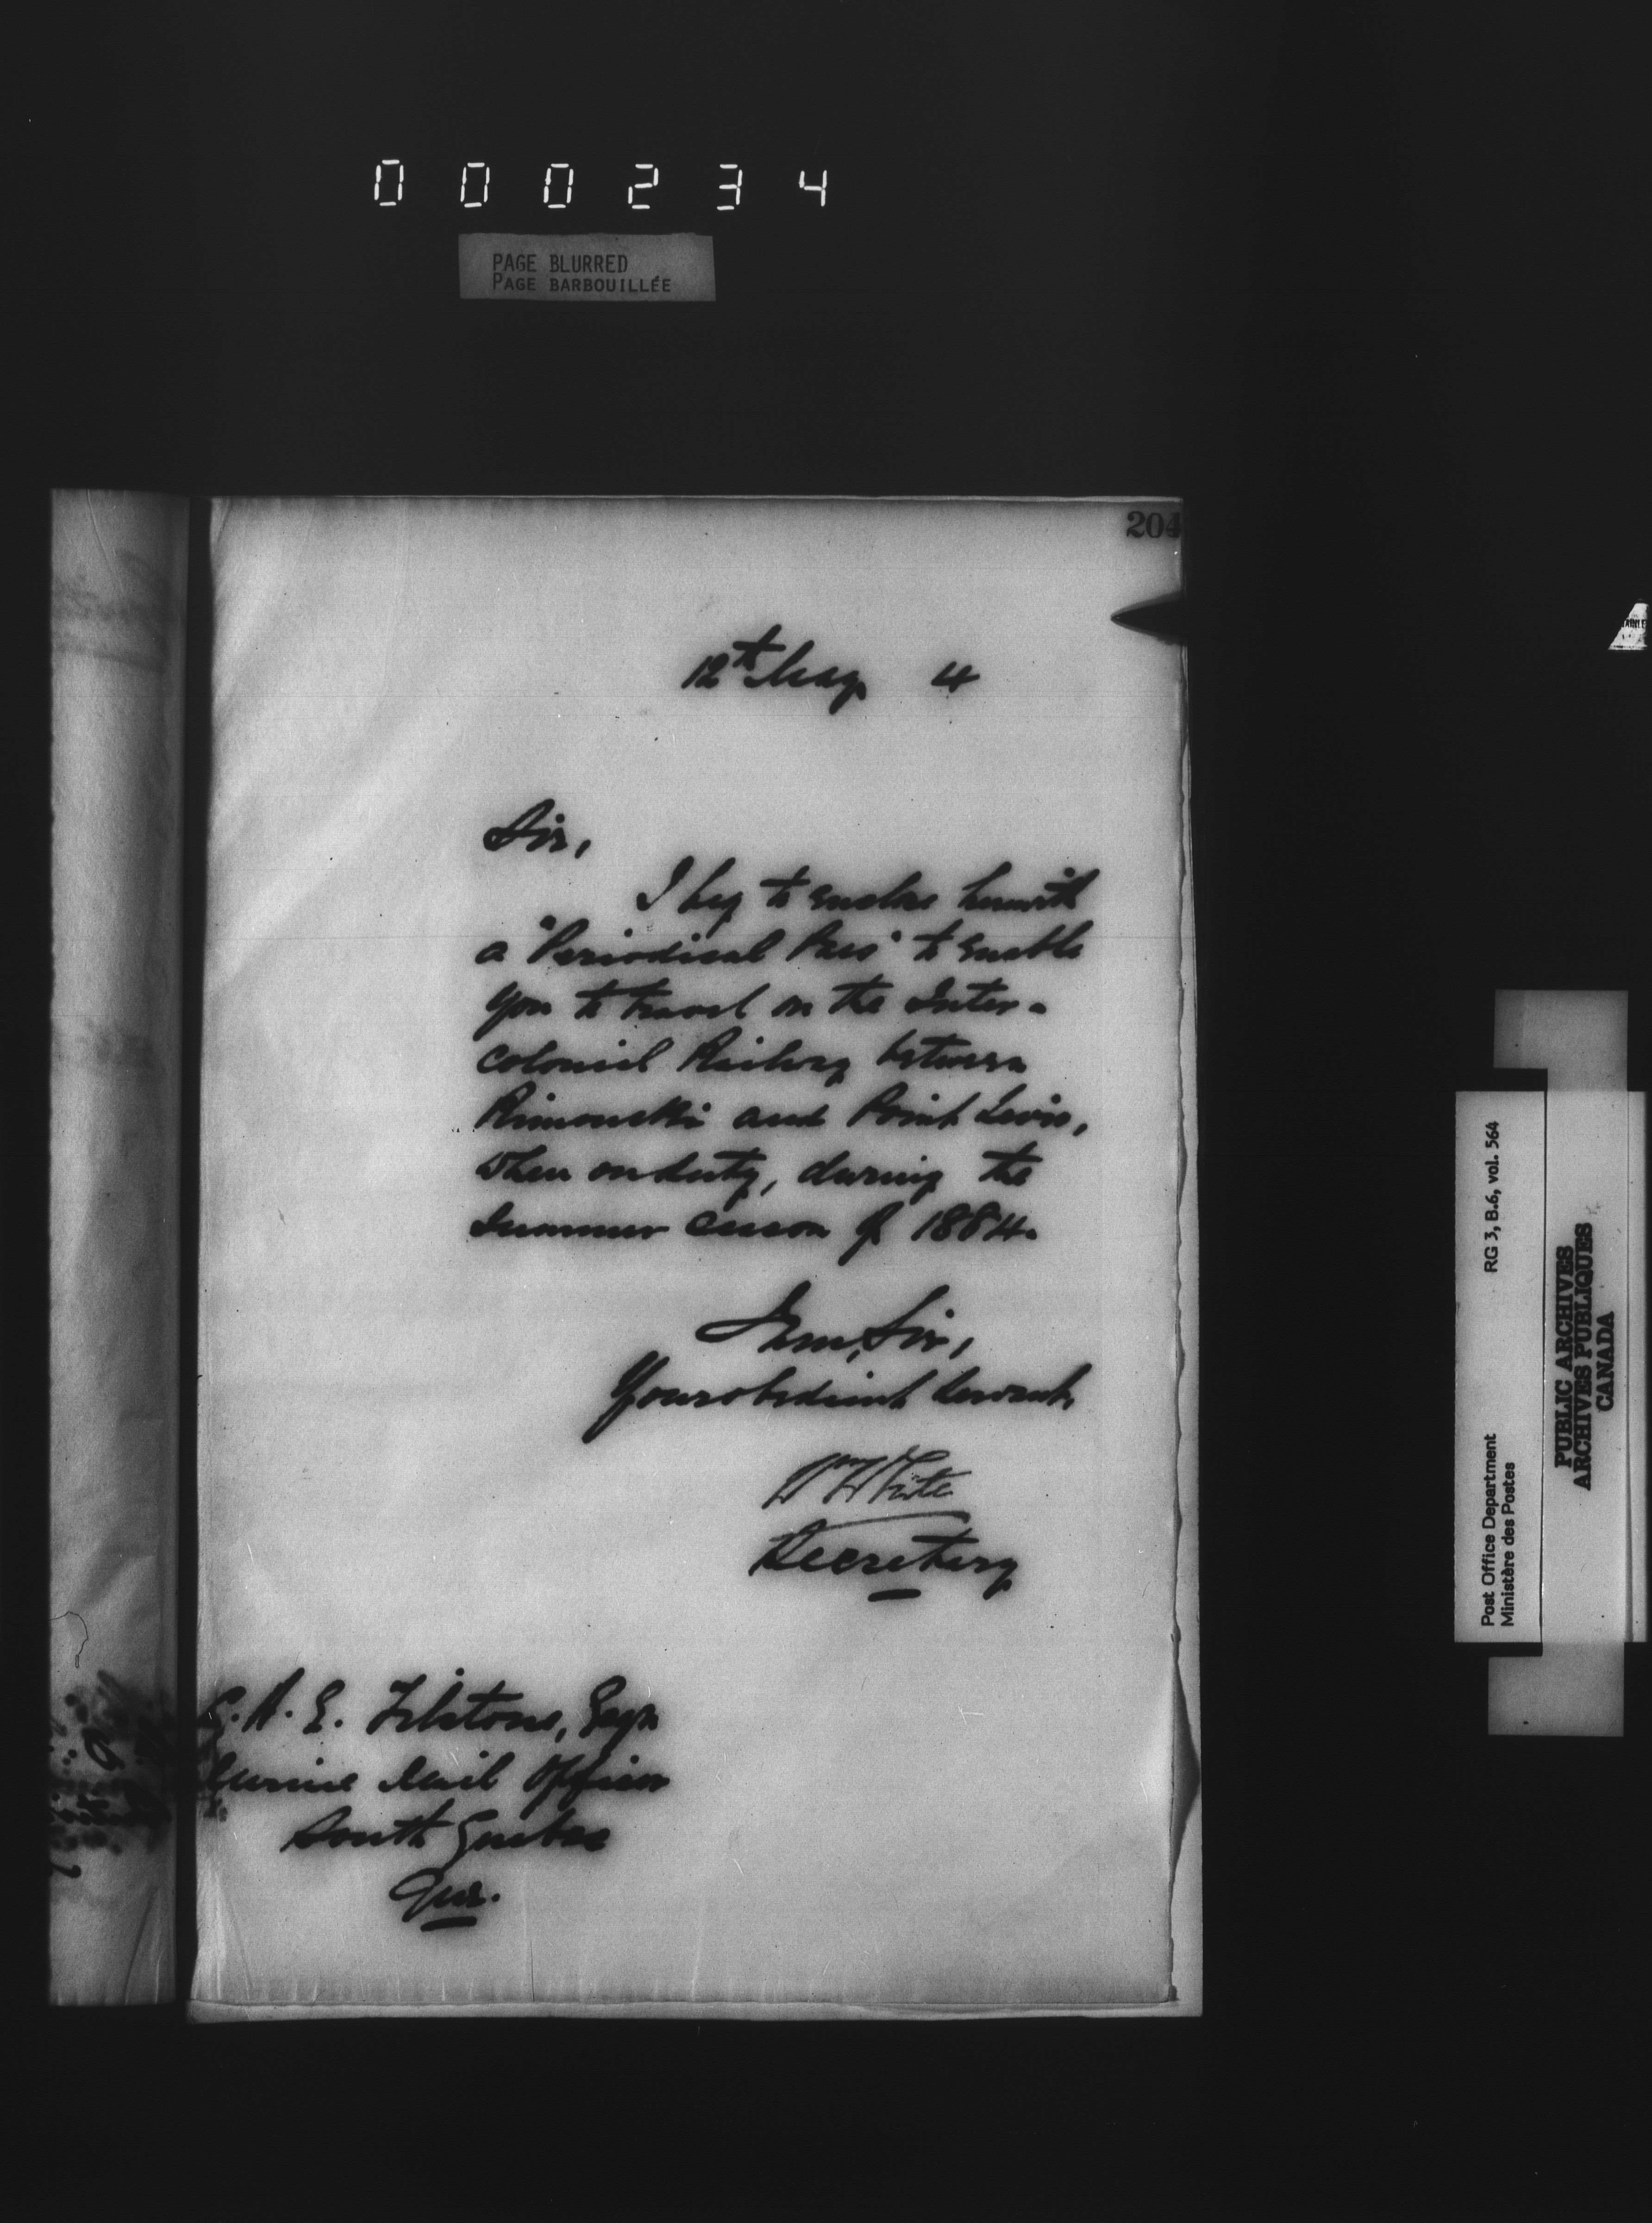 0 0 0 2 3 4
PAGE BLURRED
PAGE BARBOUILLÉE
204
12th May 4
Sir,
I beg to enclose herewith
a "Periodical Pass" to enable
you to travel on the Inter-
colonial Railway between
Rimouski and Point Levis,
when on duty, during the
Summer season of 1884.
I am, Sir,
Your obedient Servant,
Wm White
Secretary
A. E. Esqr
Marine Mail Officer
South Quebec
Que.
Post Office Department RG 3, B.6, vol. 564
Ministère des Postes
PUBLIC ARCHIVES
ARCHIVES PUBLIQUES
CANADA